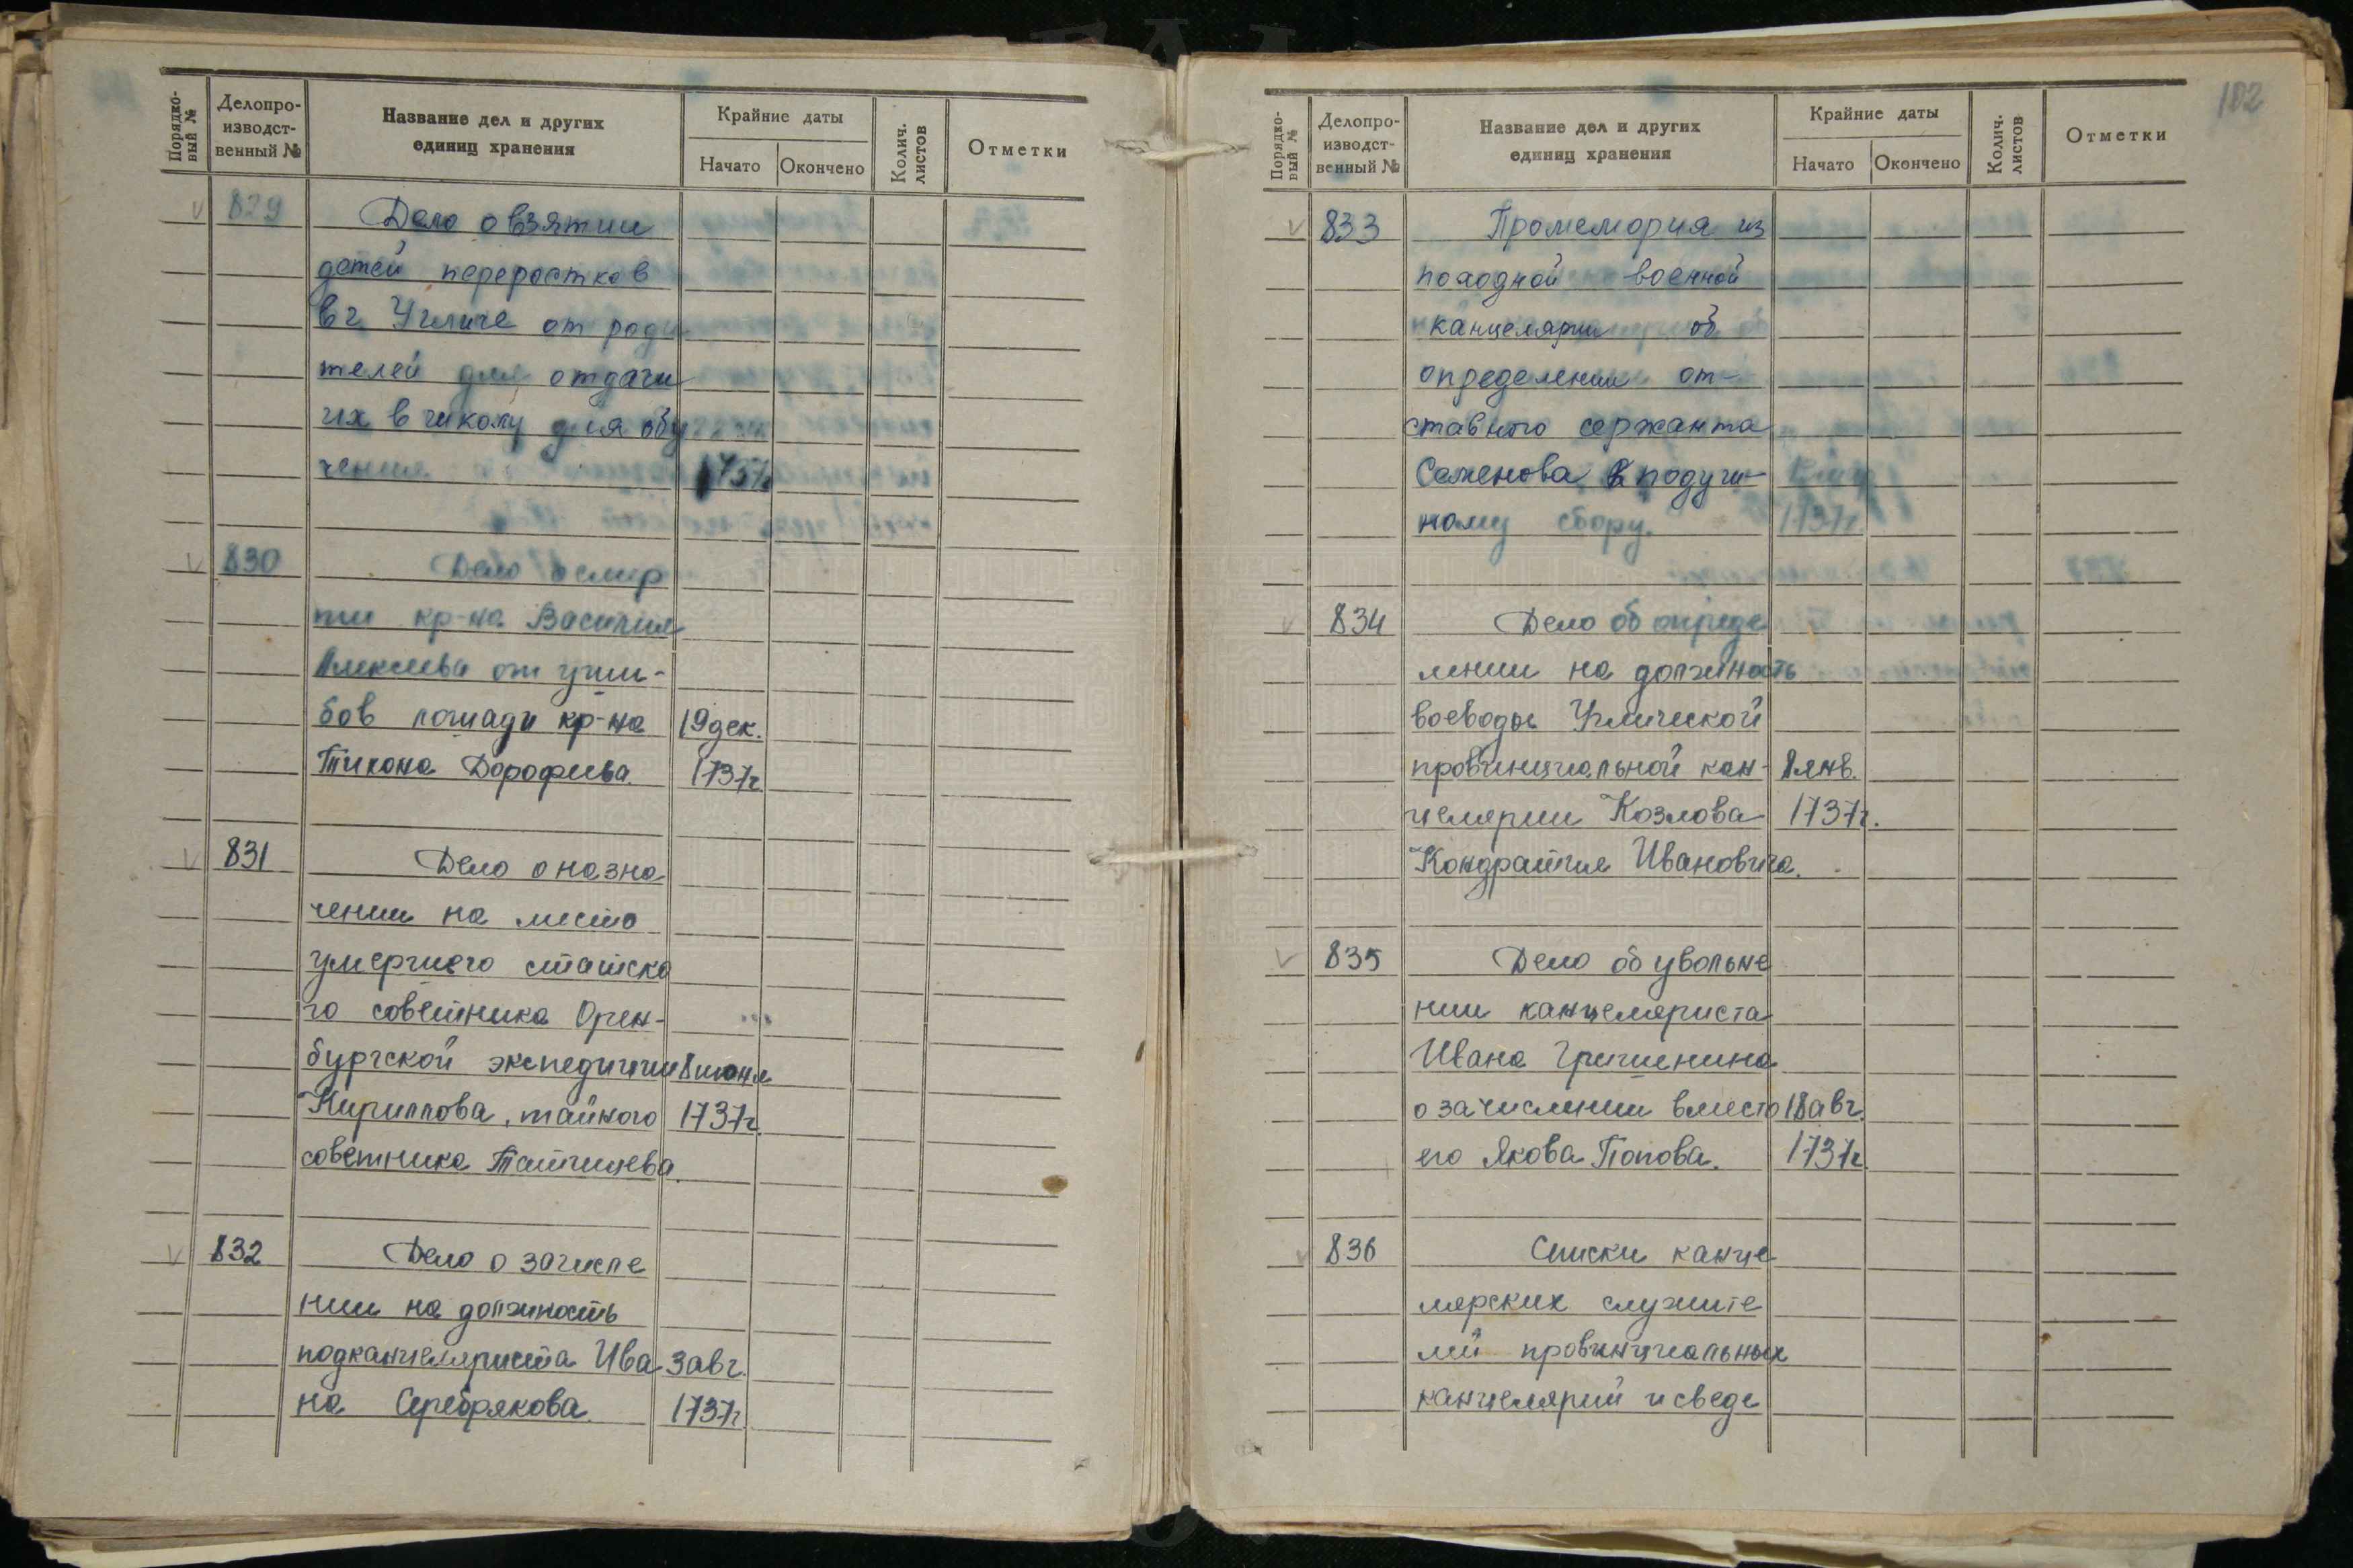 Порядко-
вый №
Делопро-
изводст-
венный №
Название дел и других
единиц хранения
Крайние даты
Начато
Окончено
Колич.
листов
Отметки
829 Дело о взятии
детей переростков
в г. Угличе от роди
телей для отдачи
их в школу для обу
чения. 1737г.
830 Дело о смер
ти кр-на Василия
Алексеева от уши-
бов лошади кр-на 19 дек.
Тихона Дорофеева. 1737г.
831 Дело о назна
чении на место
умершего статско
го советника Орен-
бургской экспедиции 8 июня
Кириллова, тайного 1737г.
советника Татищева.
832 Дело о зачисле
нии на должность
подканцеляриста Ива 3 авг.
на Серебрякова. 1737г.
102
Порядко-
вый №
Делопро-
изводст-
венный №
Название дел и других
единиц хранения
Крайние даты
Начато
Окончено
Колич.
листов
Отметки
833 Промемория из
походной военной
канцелярии об
определении от-
ставного сержанта
Саженова к подуш-
ному сбору. 1737г.
834 Дело об опреде
лении на должность
воеводы Угличской
провинциальной кан- 8 янв.
целярии Козлова 1737г.
Кондратия Ивановича.
835 Дело об увольне
нии канцеляриста
Ивана Гришенина
о зачислении вместо 18 авг.
его Якова Попова. 1737г.
836 Списки канце
лярских служите
лей провинциальных
канцелярий и сведе